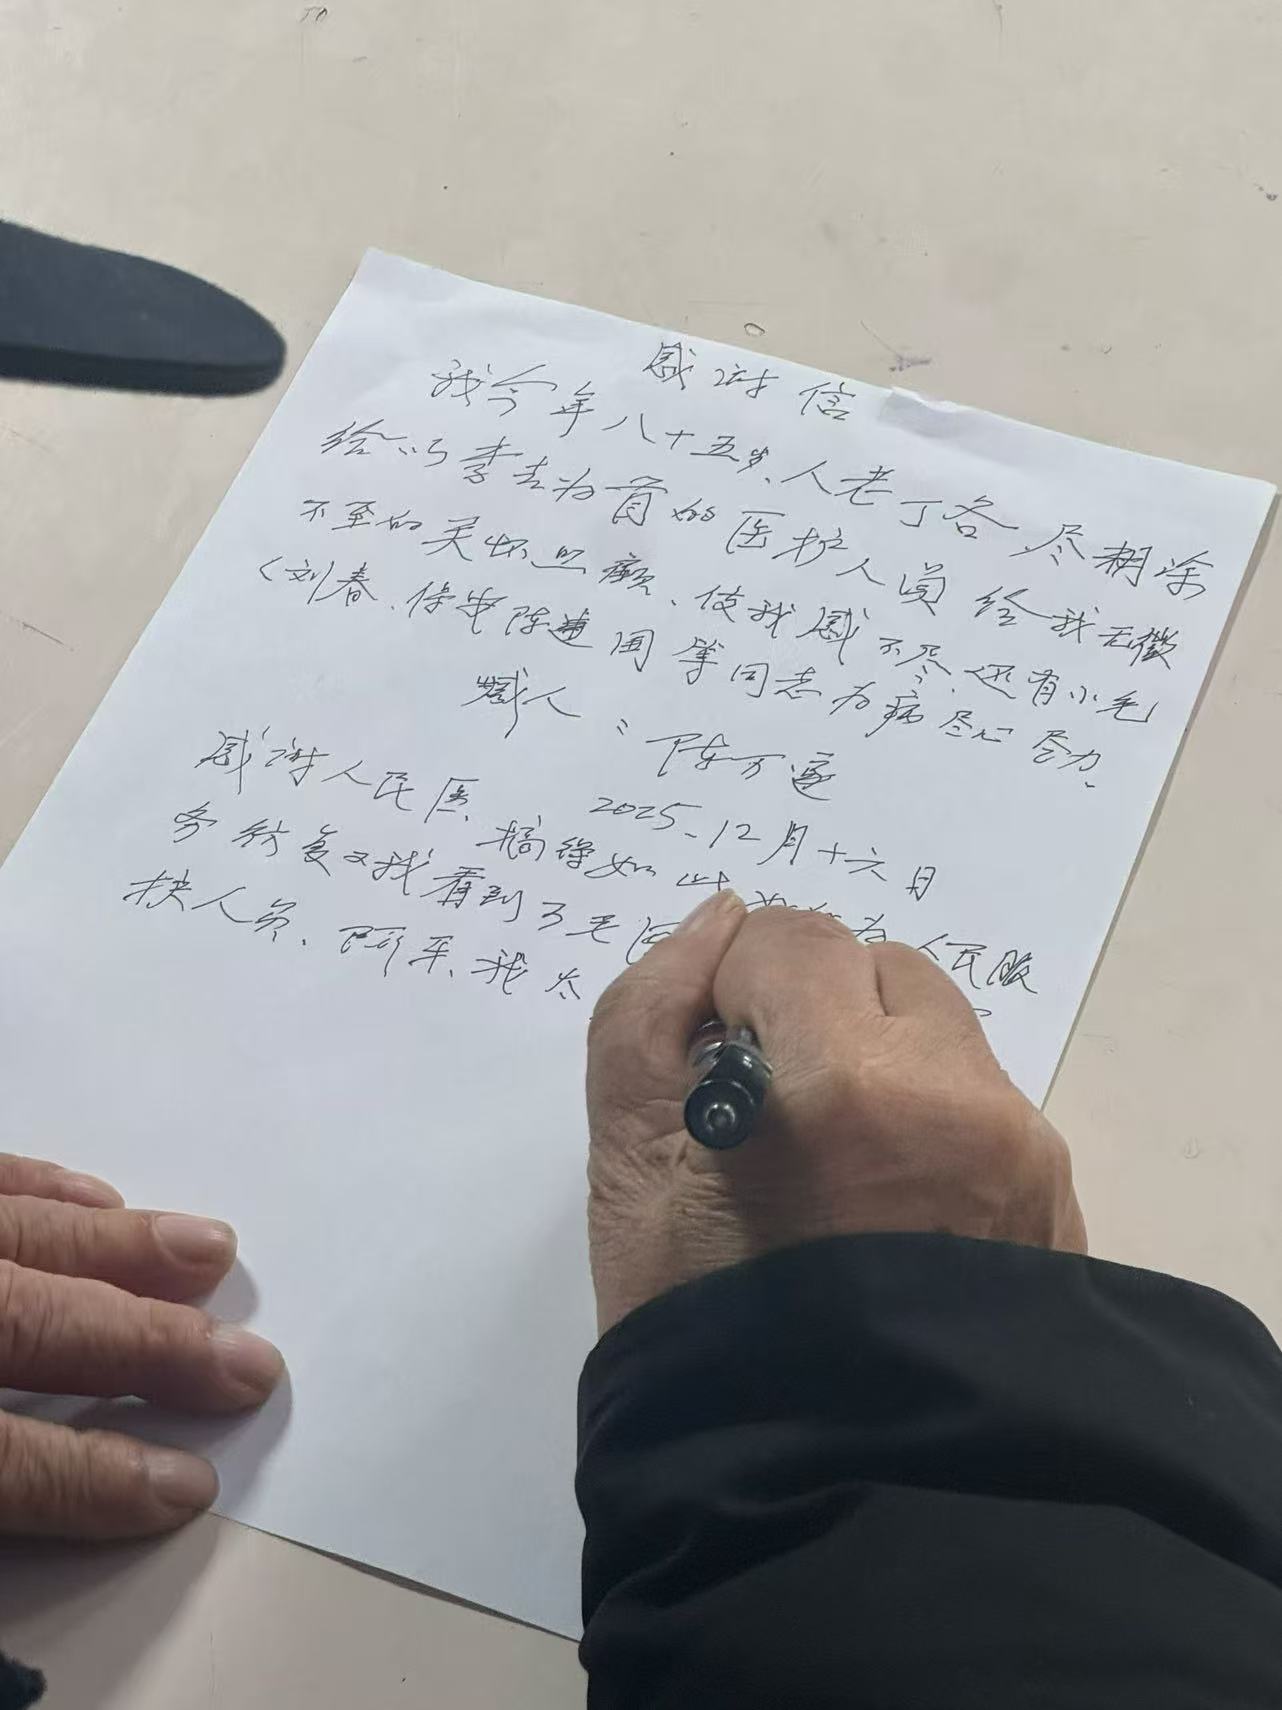 感谢信
我今年八十五岁、人老了各尽糊涂
给以李志为首的医护人员给我无微
不至的关怀照顾、使我感不尽、还有小毛
（刘春、保安陈建国等同志为病尽心尽力.
感人：陈万逐
2025-12月十六日
感谢人民医、搞得如此 为人民服
务 我看到了毛
扶人员、阿平、我太